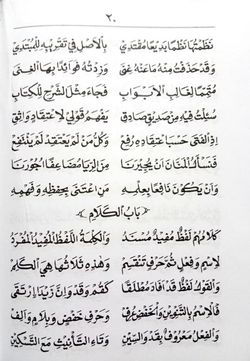 ٢٠
نَظَمْتُهَا نَظْمًا بَدِيعًا مُقْتَدِي بِالْأَصْلِ فِي تَقْرِيبِهِ لِلْمُبْتَدِي
وَقَدْ حَذَفْتُ مِنْهُ مَا عَنْهُ غِنَى وَزِدْتُهُ فَوَائِدًا بِهَا الْغِنَى
مُتَمِّمًا لِغَالِبِ الْأَبْوَابِ فَجَاءَ مِثْلَ الشَّرْحِ لِلْكِتَابِ
سُئِلْتُ فِيهِ مِنْ صَدِيقٍ صَادِقِ يَفْهَمُ قَوْلِي لِاعْتِقَادٍ وَاثِقِ
إِذِ الْفَتَى حَسْبَ اعْتِقَادِهِ رُفِعْ وَكُلُّ مَنْ لَمْ يَعْتَقِدْ لَمْ يَنْتَفِعْ
فَنَسْأَلُ الْمَنَّانَ أَنْ يُجِيرَنَا مِنَ الرِّيَا مُضَاعِفًا أُجُورَنَا
وَأَنْ يَكُونَ نَافِعًا بِعِلْمِهِ مَنِ اعْتَنَى بِحِفْظِهِ وَفَهْمِهِ
﴿ بَابُ الْكَلَامِ ﴾
كَلَامُهُمْ لَفْظٌ مُفِيدٌ مُسْنَدُ وَالْكِلْمَةُ اللَّفْظُ الْمُفِيدُ الْمُفْرَدُ
لِاسْمٍ وَفِعْلٍ ثُمَّ حَرْفٍ تَنْقَسِمْ وَهٰذِهِ ثَلَاثُهَا هِيَ الْكَلِمْ
وَالْقَوْلُ لَفْظٌ قَدْ أَفَادَ مُطْلَقًا كَقُمْ وَقَدْ وَإِنَّ زَيْدًا ارْتَقَى
فَالِاسْمُ بِالتَّنْوِينِ وَالْخَفْضِ عُرِفْ وَحَرْفِ خَفْضٍ وَبِلَامٍ وَأَلِفْ
وَالْفِعْلُ مَعْرُوفٌ بِقَدْ وَالسِّينِ وَتَاءِ التَّأْنِيثِ مَعَ التَّسْكِينِ